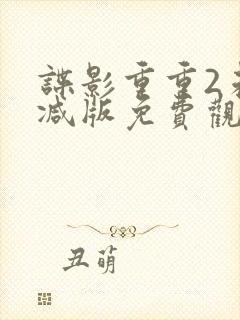 諜影重重2
減版免費觀
丑萌